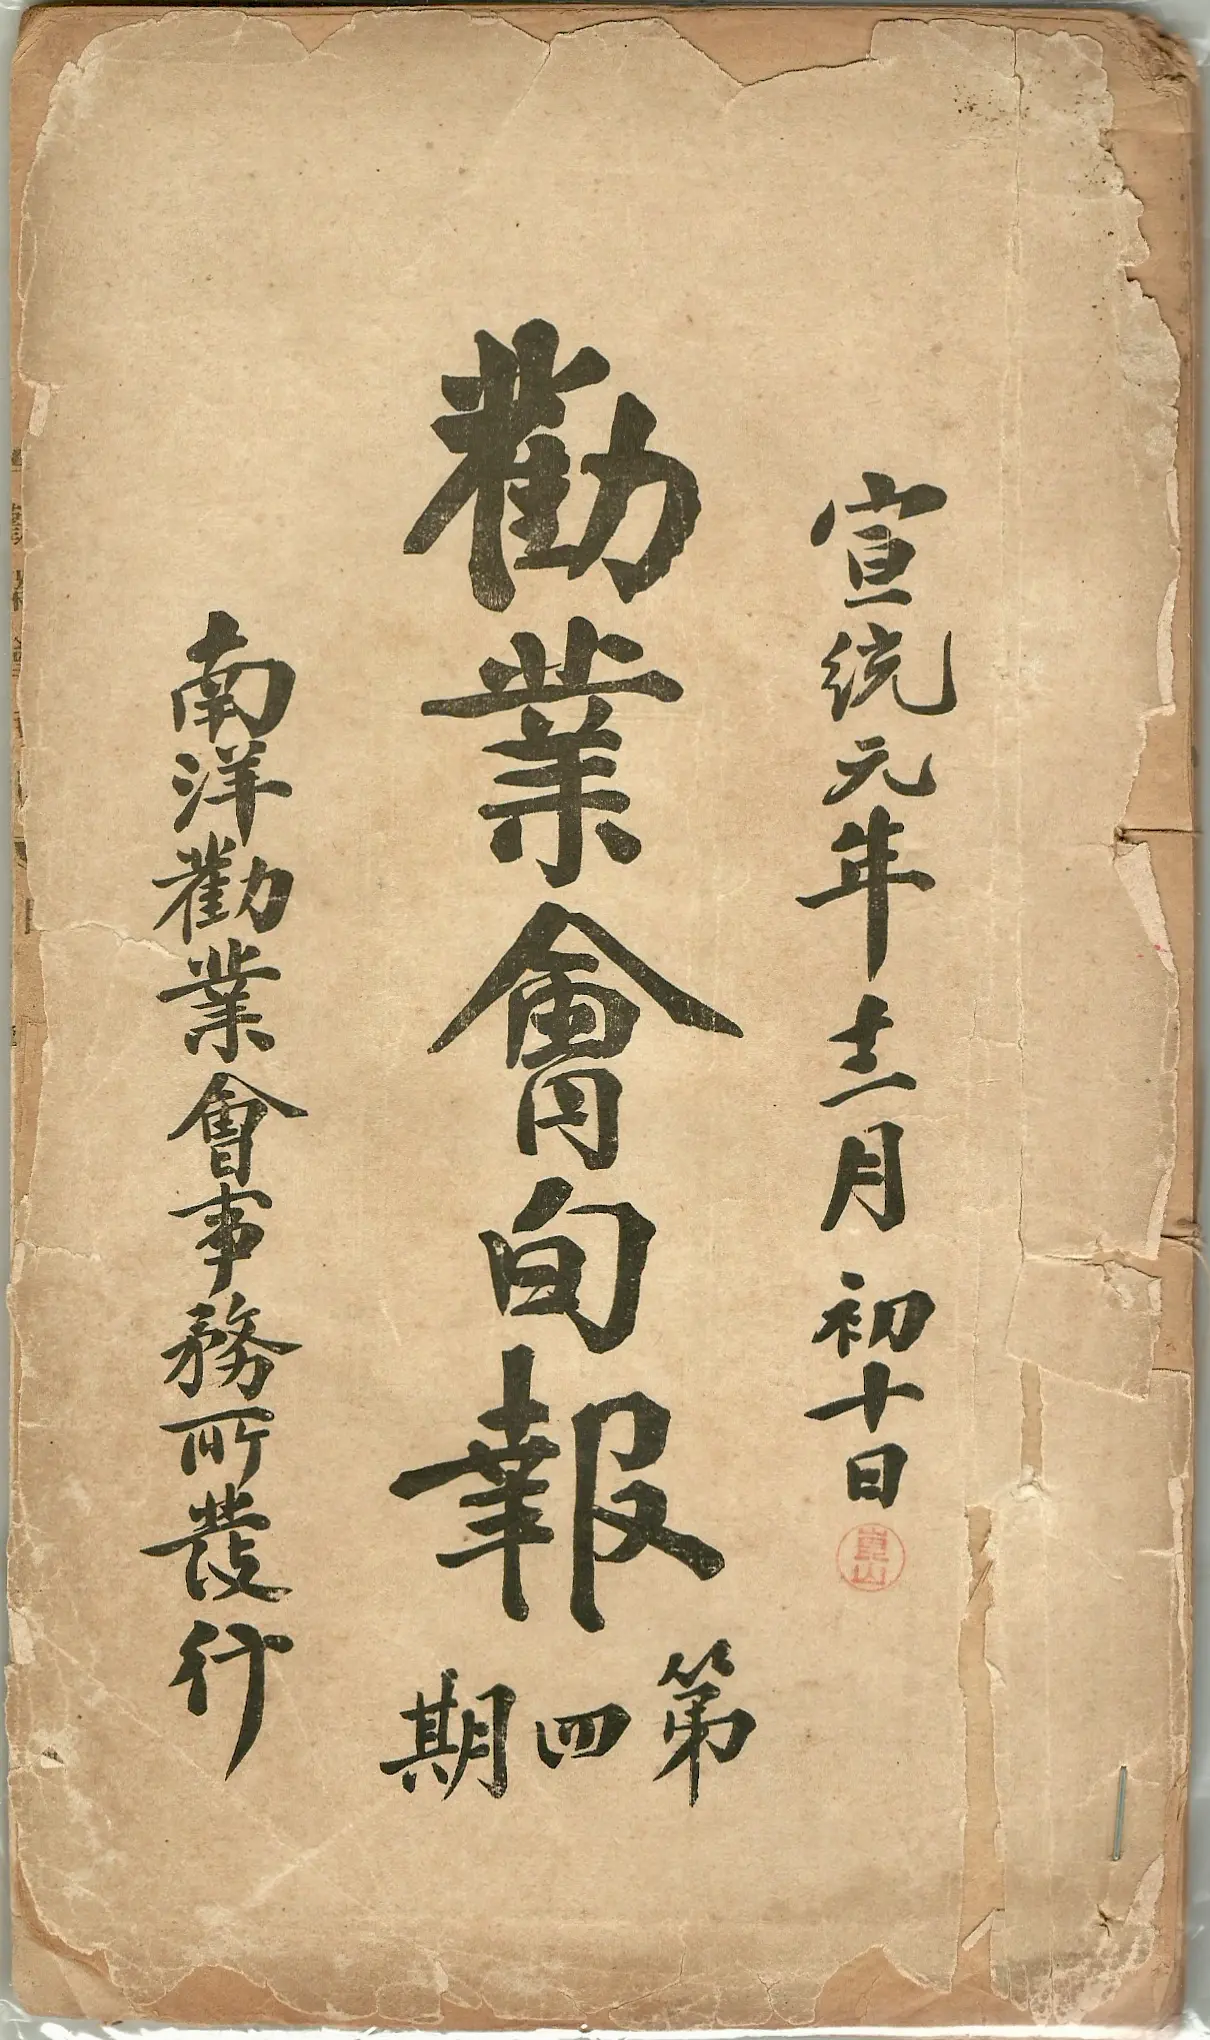 宣統元年十二月初十日
勸業會旬報
第四期
南洋勸業會事務所發行